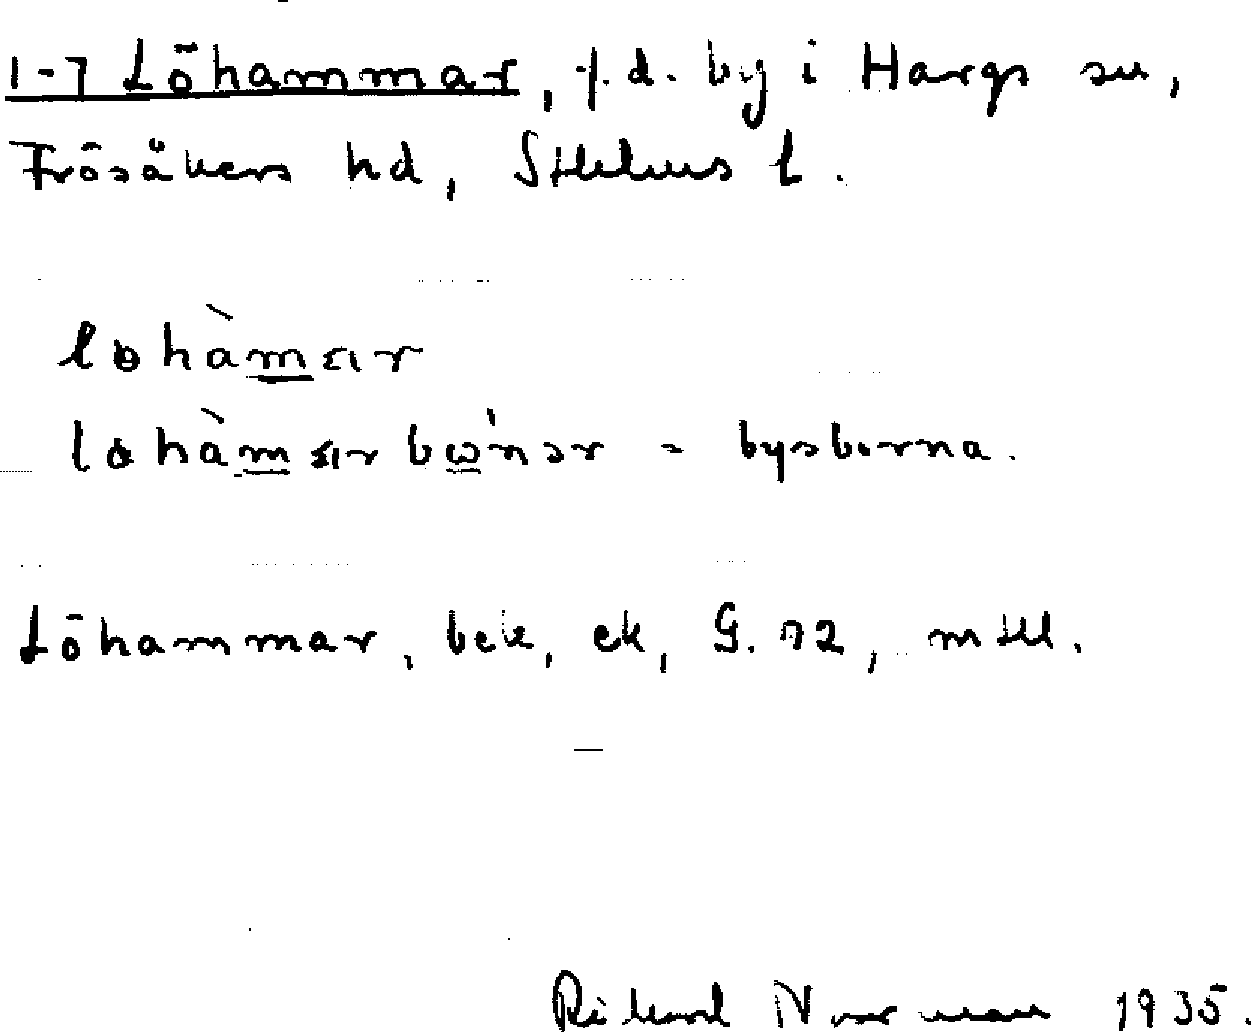 1-7 Löhammar, f.d. by i Hargs sn,
Frösåkers hd, Sthlms l.
lohàmar
lohàmarbω'nər = bysborna.
Löhammar, bek, ek, G. 72, mtl.
Rikard Norrman 1935.